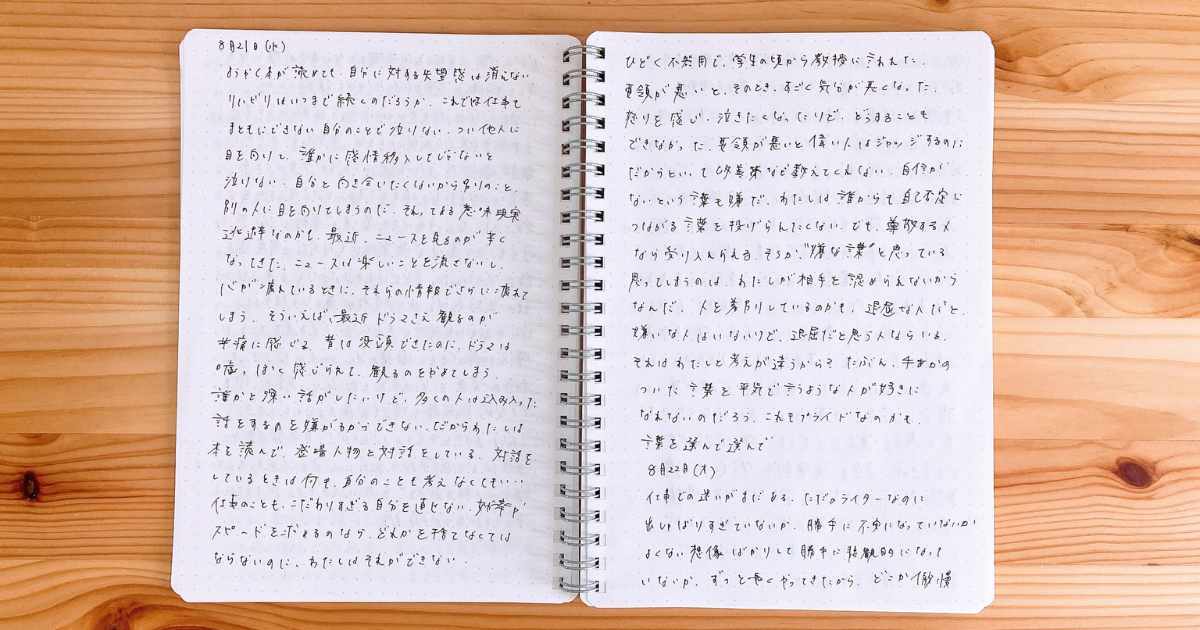 8月21日(水)
ようやく本が読めても、自分に対する失望感は消えない
リハビリはいつまで続くのだろうか、これでは仕事も
まともにできない自分のことで泣けない、つい他人に
目を向けて、誰かに感情移入してじゃないと
泣けない、自分と向き合いたくないから別のこと、
別の人に目を向けてしまうのだ。それってある意味現実
逃避なのかも、最近、ニュースを見るのが辛く
なってきた、ニュースは楽しいことを流さないし、
心が疲れているときに、それらの情報でさらに疲れて
しまう、そういえば、最近ドラマさえ観るのが
苦痛に感じる、昔は没頭できたのに、ドラマは
"嘘"っぽく感じられて、観るのをやめてしまう。
誰かと深い話がしたいけど、多くの人は込み入った
話をするのを嫌がるからできない、だからわたしは
本を読んで、登場人物と対話をしている、対話を
しているときは何も、自分のことも考えなくてもいい…
仕事のことも、こだわりすぎる自分を直せない、効率が
スピードを求めるのなら、どれかを捨てなくては
ならないのに、わたしはそれができない。
ひどく不器用で、学生の頃から教授に言われた、
要領が悪いと、そのとき、すごく気分が悪くなった、
怒りを感じ、泣きたくなったけど、どうすることも
できなかった、要領が悪いと偉い人はジャッジするのに
だからといって改善策など教えてくれない、自信が
ないという言葉も嫌だ、わたしは誰からも自己否定に
つながる言葉を投げられたくない、でも、尊敬する人
なら受け入れられる、そうか、"嫌な言葉"と思っている
思ってしまうのは、わたしが相手を認められないから
なんだ、人を差別しているのかも、退屈な人だと、
嫌いな人はいないけど、退屈だと思う人ならいる、
それはわたしと考えが違うから?たぶん、手あかの
ついた言葉を平気で言うような人が好きに
なれないのだろう、これもプライドなのかも、
言葉を選んで選んで
8月22日(木)
仕事での迷いがまだある、ただのライターなのに
出しゃばりすぎていないか、勝手に不安になっていないか
よくない想像ばかりして勝手に悲観的になって
いないか、ずっと長くやってきたから、どこか傲慢